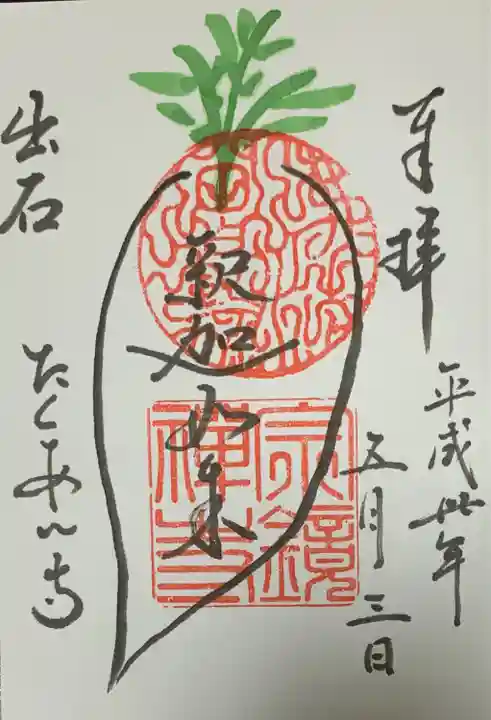 奉拝
平成卅年
五月三日
釈迦如来
宗鏡
禅寺
出石
たくあん寺